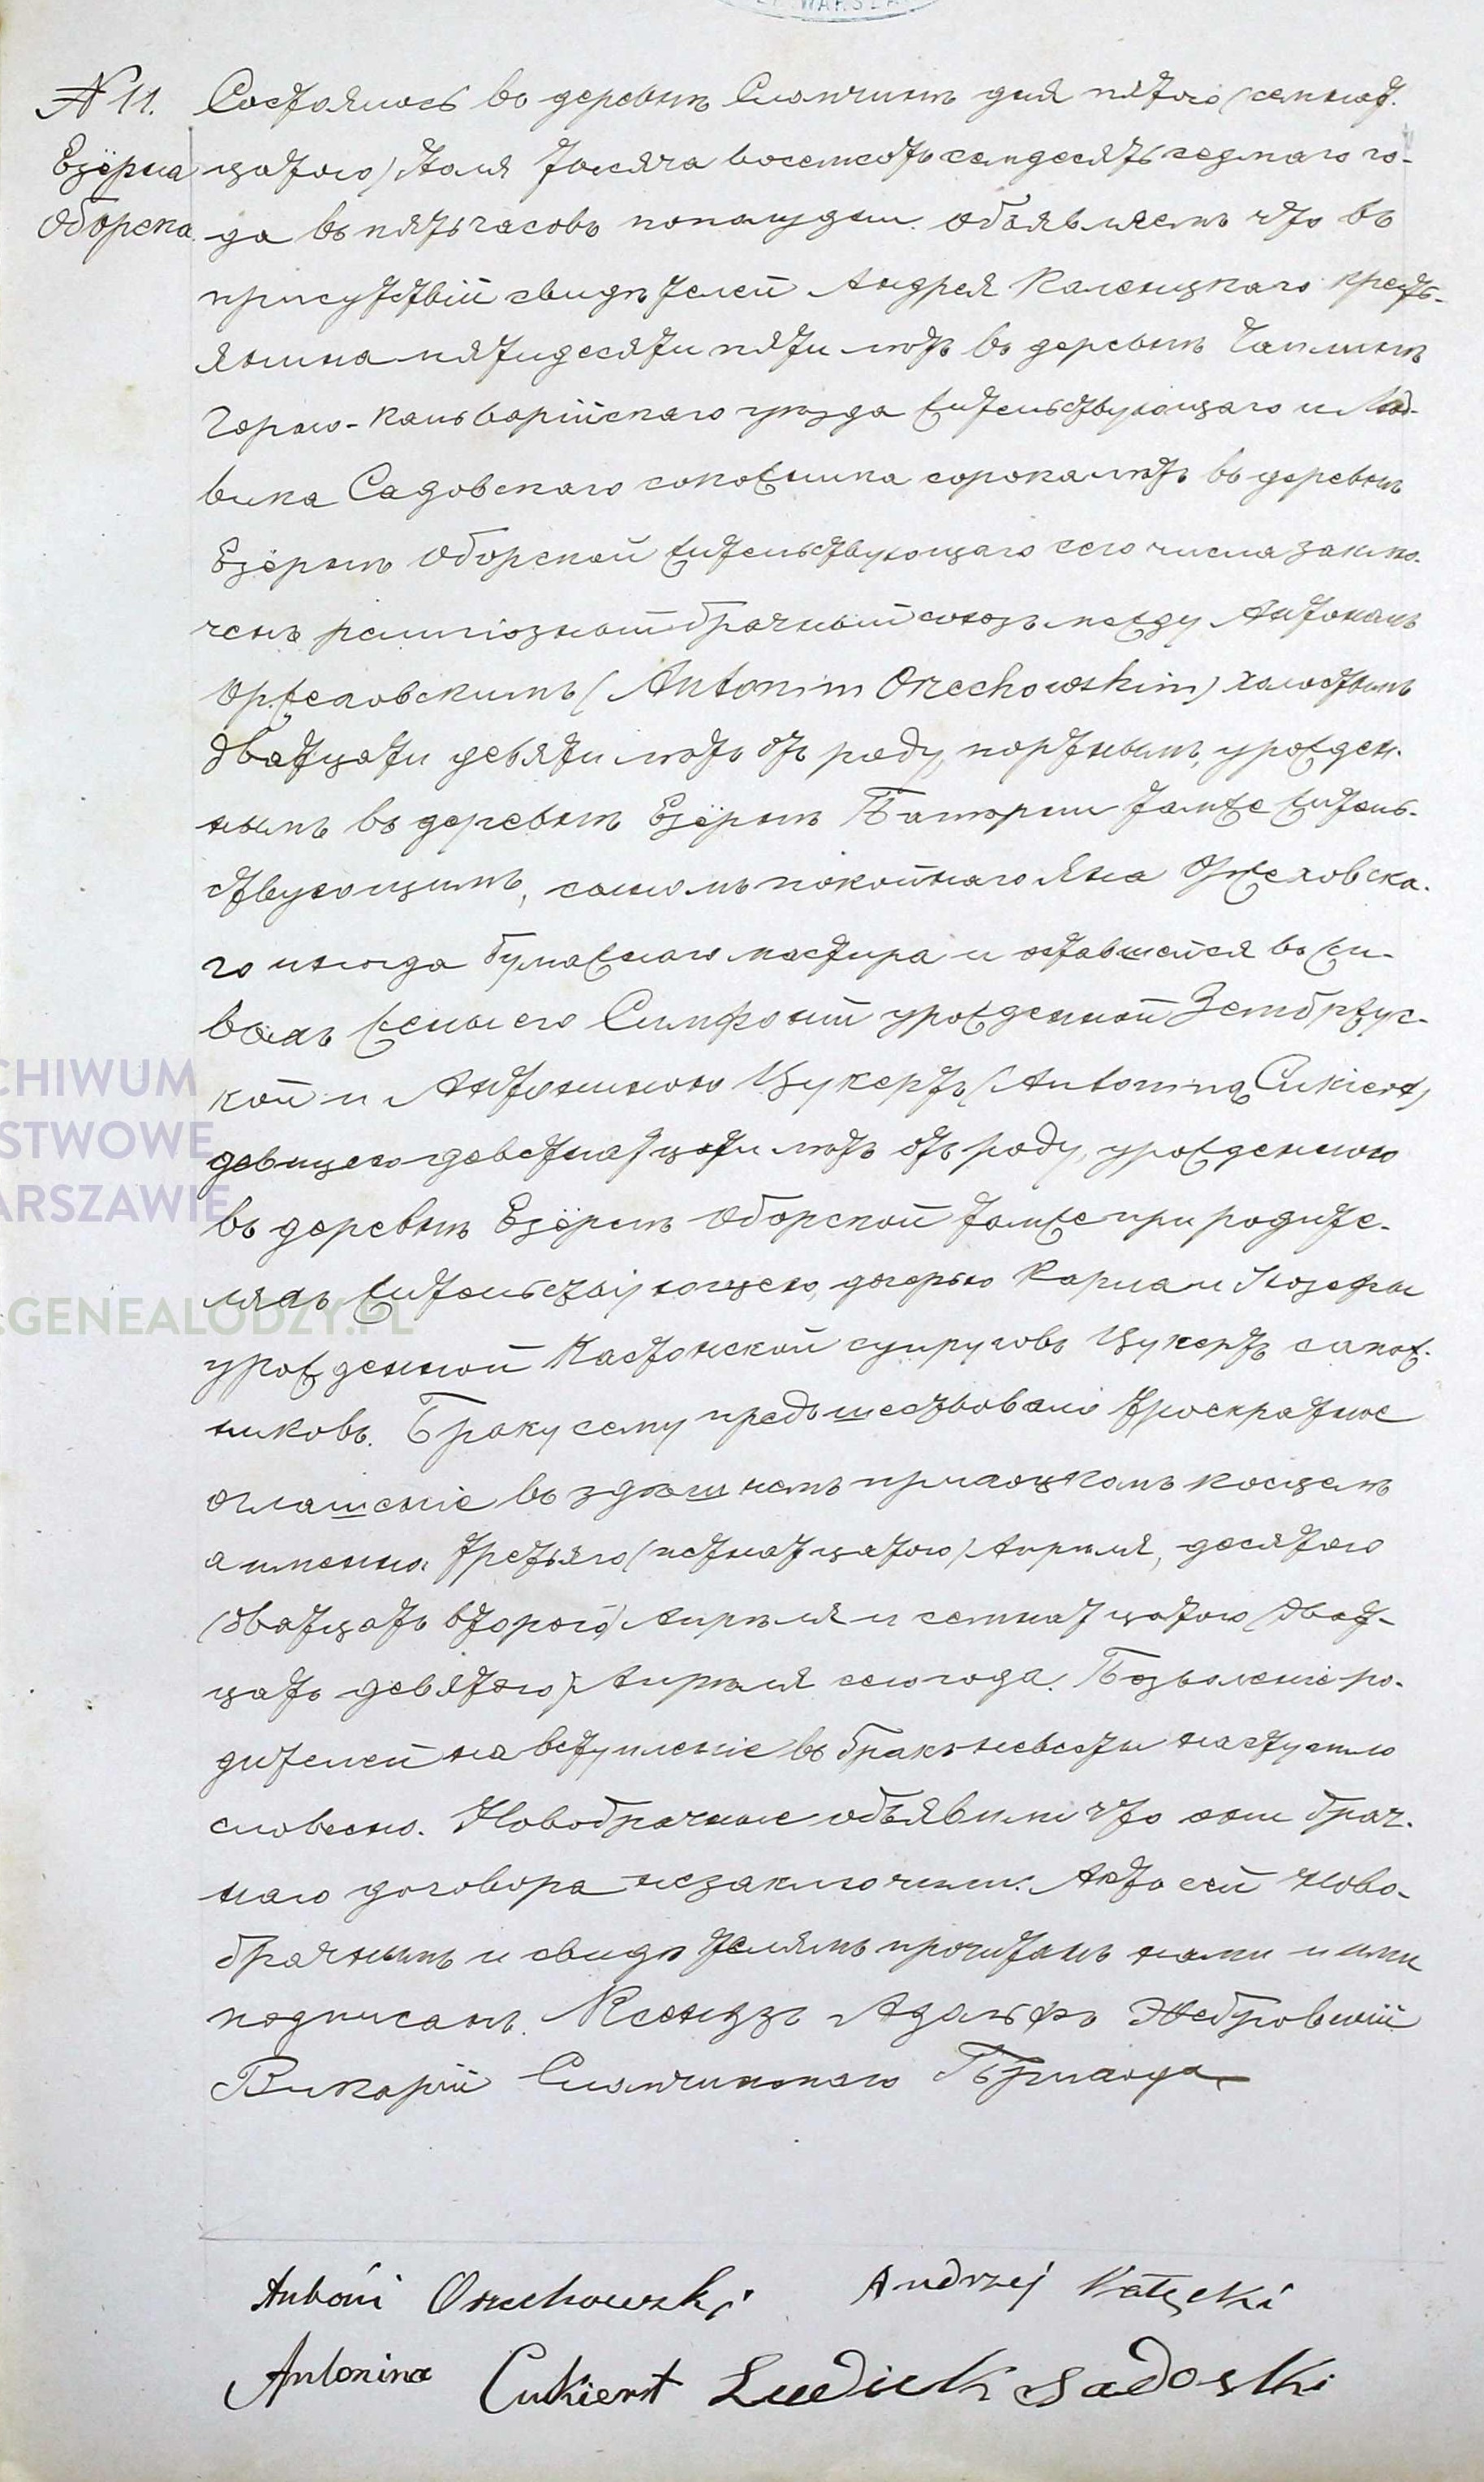 № 11.
Езёрна
Оборска.
Состоялось въ деревнѣ Сломчинѣ дня пятого (семнад-
цатого) Мая тысяча восемсотъ семдесятъ седмаго го-
да въ пять часовъ пополудни. Объявляемъ что въ
присутствіи свидѣтелей Андрея Каленцкаго кресть-
янина пятидесяти пяти лѣтъ въ деревнѣ Чаплинѣ
Горно-Кальварійскаго уѣзда жительствующаго и Люд-
вика Садовскаго сапожника сорока лѣтъ въ деревнѣ
Езёрнѣ Оборской жительствующаго сего числа заклю-
ченъ религіозный брачный союзъ между Антономъ
Оржеховскимъ (Antonim Orzechowskim) холостымъ
двадцати девяти лѣтъ отъ роду, портнымъ, урожден-
нымъ въ деревнѣ Езёрнѣ тамже житель-
ствующимъ, сыномъ покойнаго Яна Оржеховска-
го иногда бумажнаго мастира и оставшейся въ жи-
выхъ жены его урожденной
кой и Антониною Цукертъ (Antonina Cukiert)
девицею деветнатцати лѣтъ отъ роду, урожденною
въ деревнѣ Езёрнѣ Оборской тамже при родите-
ляхъ жительствующею, дочерью Карла и Іозефы
урожденной Кастонской супруговъ Цукертъ сапож-
никовъ. Браку сему предшествовало троекратное
оглашеніе въ здѣшнемъ приходскомъ косцелѣ
а именно третьяго (петнатцатого) Апрѣля, десятого
(двадцать второго) Апрѣля и семнатцатого (двад-
цать девятого) Апрѣля сего года. Позволеніе ро-
дителей на вступленіе въ бракъ невесты наступило
словесно. Новобрачные объявили что они брач-
наго договора незаключили. Актъ сей Ново-
брачнымъ и свидѣтелямъ прочитанъ нами и ими
подписанъ. Ксендзъ Адольфъ Жебровскій
Викарій Сломчинскаго Прихода
Antoni Orzechowski Andrzej Kalęcki
Antonina Cukiert Ludwik Sadoski
ARCHIWUM
PAŃSTWOWE
WARSZAWIE
GENEALODZY.PL